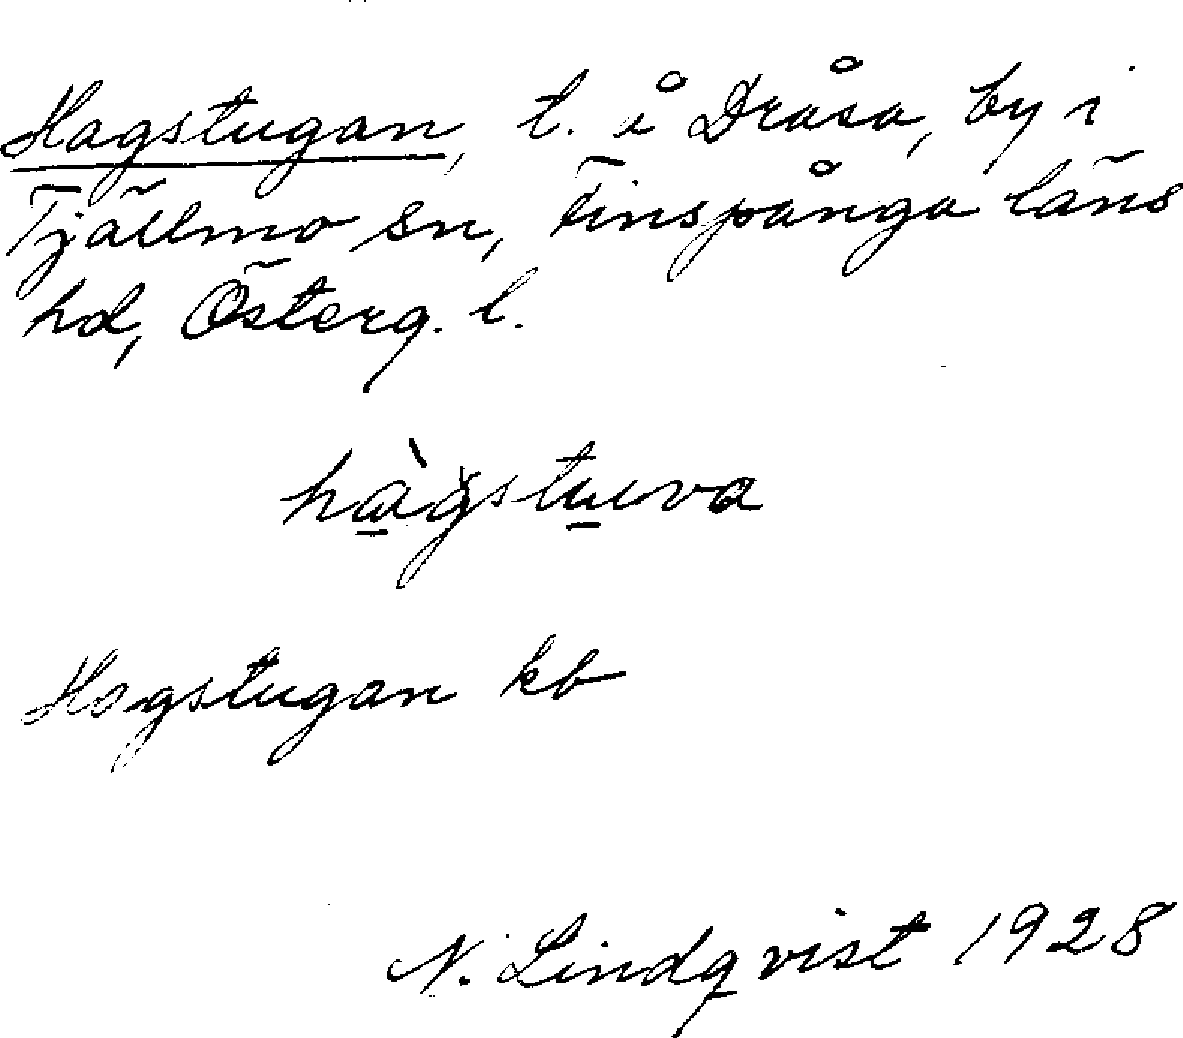 Hagstugan, t. å Dråsa, by i
Tjällmo sn, Finspånga läns
hd, Österg. l.
hàgstuva
Hagstugan kb
N. Lindqvist 1928